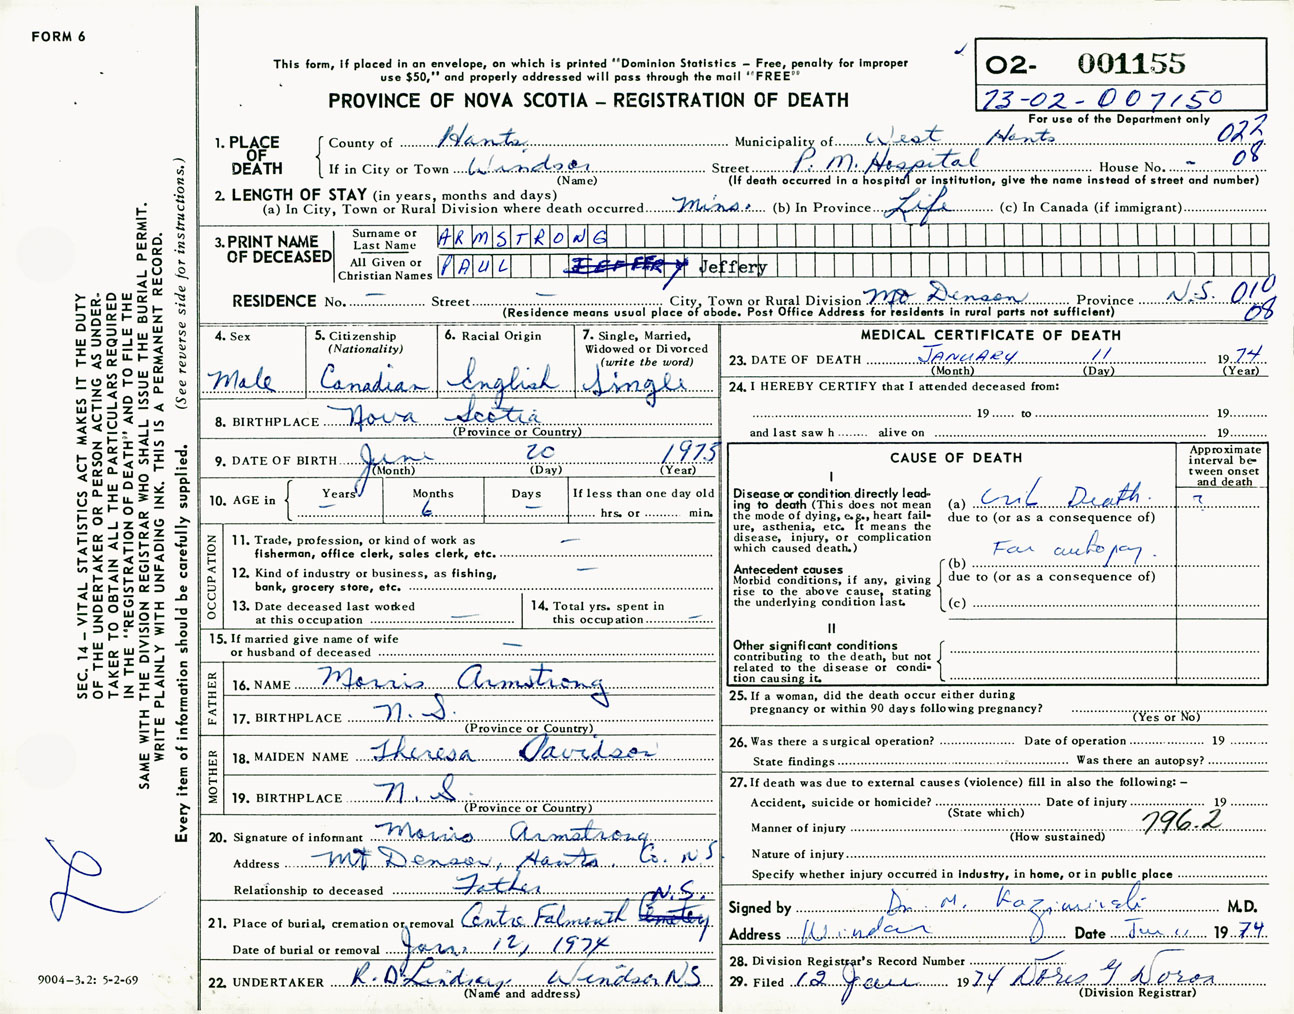 FORM 6
This form, if placed in an envelope, on which is printed "Dominion Statistics – Free, penalty for improper
use $50," and properly addressed will pass through the mail "FREE"
PROVINCE OF NOVA SCOTIA – REGISTRATION OF DEATH
O2- 001155
73-02-007150
For use of the Department only
022
08
1. PLACE OF DEATH
County of Hants Municipality of West Hants
If in City or Town Windsor Street P. M. Hospital House No. -
(Name) (If death occurred in a hospital or institution, give the name instead of street and number)
2. LENGTH OF STAY (in years, months and days)
(a) In City, Town or Rural Division where death occurred Mins. (b) In Province Life (c) In Canada (if immigrant)
3. PRINT NAME OF DECEASED
Surname or Last Name ARMSTRONG
All Given or Christian Names PAUL JEFFERY Jeffery
RESIDENCE No. – Street – City, Town or Rural Division Mt Denson Province N.S. 010
08
(Residence means usual place of abode. Post Office Address for residents in rural parts not sufficient)
4. Sex
Male
5. Citizenship
(Nationality)
Canadian
6. Racial Origin
English
7. Single, Married,
Widowed or Divorced
(write the word)
Single
8. BIRTHPLACE Nova Scotia
(Province or Country)
9. DATE OF BIRTH June 20 1973
(Month) (Day) (Year)
10. AGE in Years – Months 6 Days – If less than one day old
hrs. or min.
OCCUPATION
11. Trade, profession, or kind of work as –
fisherman, office clerk, sales clerk, etc.
12. Kind of industry or business, as fishing, –
bank, grocery store, etc.
13. Date deceased last worked
at this occupation –
14. Total yrs. spent in
this occupation –
15. If married give name of wife
or husband of deceased –
FATHER
16. NAME Morris Armstrong
17. BIRTHPLACE N. S.
(Province or Country)
MOTHER
18. MAIDEN NAME Theresa Davidson
19. BIRTHPLACE N. S.
(Province or Country)
20. Signature of informant Morris Armstrong
Address Mt Denson, Hants Co. N.S
Relationship to deceased Father
N.S.
21. Place of burial, cremation or removal Centre Falmouth Cemetery
Date of burial or removal Jan. 12, 1974
22. UNDERTAKER R. D Lindsay Windsor NS
(Name and address)
MEDICAL CERTIFICATE OF DEATH
23. DATE OF DEATH JANUARY 11 1974
(Month) (Day) (Year)
24. I HEREBY CERTIFY that I attended deceased from:
19 to 19
and last saw h alive on 19
CAUSE OF DEATH
Approximate
interval be-
tween onset
and death
I
Disease or condition directly lead-
ing to death (This does not mean
the mode of dying, e.g., heart fail-
ure, asthenia, etc. It means the
disease, injury, or complication
which caused death.)
(a) Crib Death. ?
due to (or as a consequence of)
For autopsy.
Antecedent causes
Morbid conditions, if any, giving
rise to the above cause, stating
the underlying condition last.
(b)
due to (or as a consequence of)
(c)
II
Other significant conditions
contributing to the death, but not
related to the disease or condi-
tion causing it.
25. If a woman, did the death occur either during
pregnancy or within 90 days following pregnancy?
(Yes or No)
26. Was there a surgical operation? Date of operation 19
State findings Was there an autopsy?
27. If death was due to external causes (violence) fill in also the following: –
Accident, suicide or homicide? Date of injury 19
(State which)
Manner of injury 796.2
(How sustained)
Nature of injury
Specify whether injury occurred in industry, in home, or in public place
Signed by Dr. M. M.D.
Address Windsor Date Jan 11 1974
28. Division Registrar's Record Number
29. Filed 12 Jan 1974 Doris G
(Division Registrar)
SEC. 14 – VITAL STATISTICS ACT MAKES IT THE DUTY
OF THE UNDERTAKER OR PERSON ACTING AS UNDER-
TAKER TO OBTAIN ALL THE PARTICULARS REQUIRED
IN THE "REGISTRATION OF DEATH" AND TO FILE THE
SAME WITH THE DIVISION REGISTRAR WHO SHALL ISSUE THE BURIAL PERMIT.
WRITE PLAINLY WITH UNFADING INK. THIS IS A PERMANENT RECORD.
Every item of information should be carefully supplied. (See reverse side for instructions.)
9004–3.2: 5-2-69